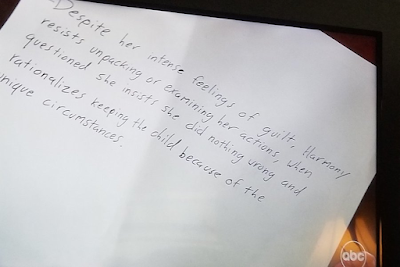 Despite her intense feelings of guilt, Harmony
resists unpacking or examining her actions, when
questioned she insists she did nothing wrong and
rationalizes keeping the child because of the
unique circumstances.
abc